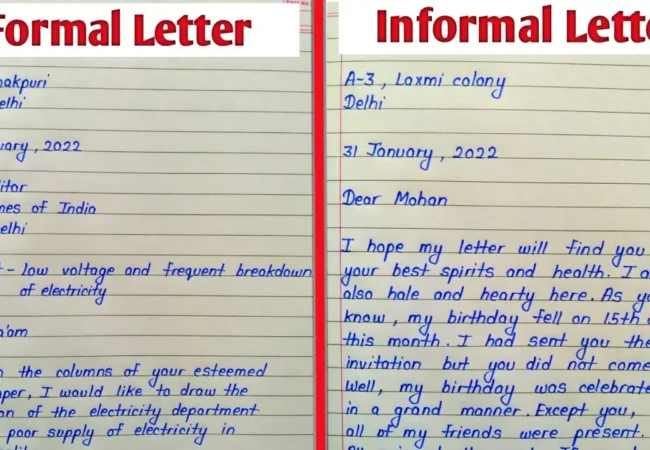 Formal Letter
akpuri
elhi
uary, 2022
itor
mes of India
elhi
- low voltage and frequent breakdown
of electricity
a'am
the columns of your esteemed
per, I would like to draw the
on of the electricity department
poor supply of electricity in
Informal Lette
A-3, Laxmi colony
Delhi
31 January, 2022
Dear Mohan
I hope my letter will find you
your best spirits and health. I a
also hale and hearty here. As yo
know, my birthday fell on 15th
this month. I had sent you the
invitation but you did not come
Well, my birthday was celebrate
in a grand manner. Except you,
all of my friends were present.